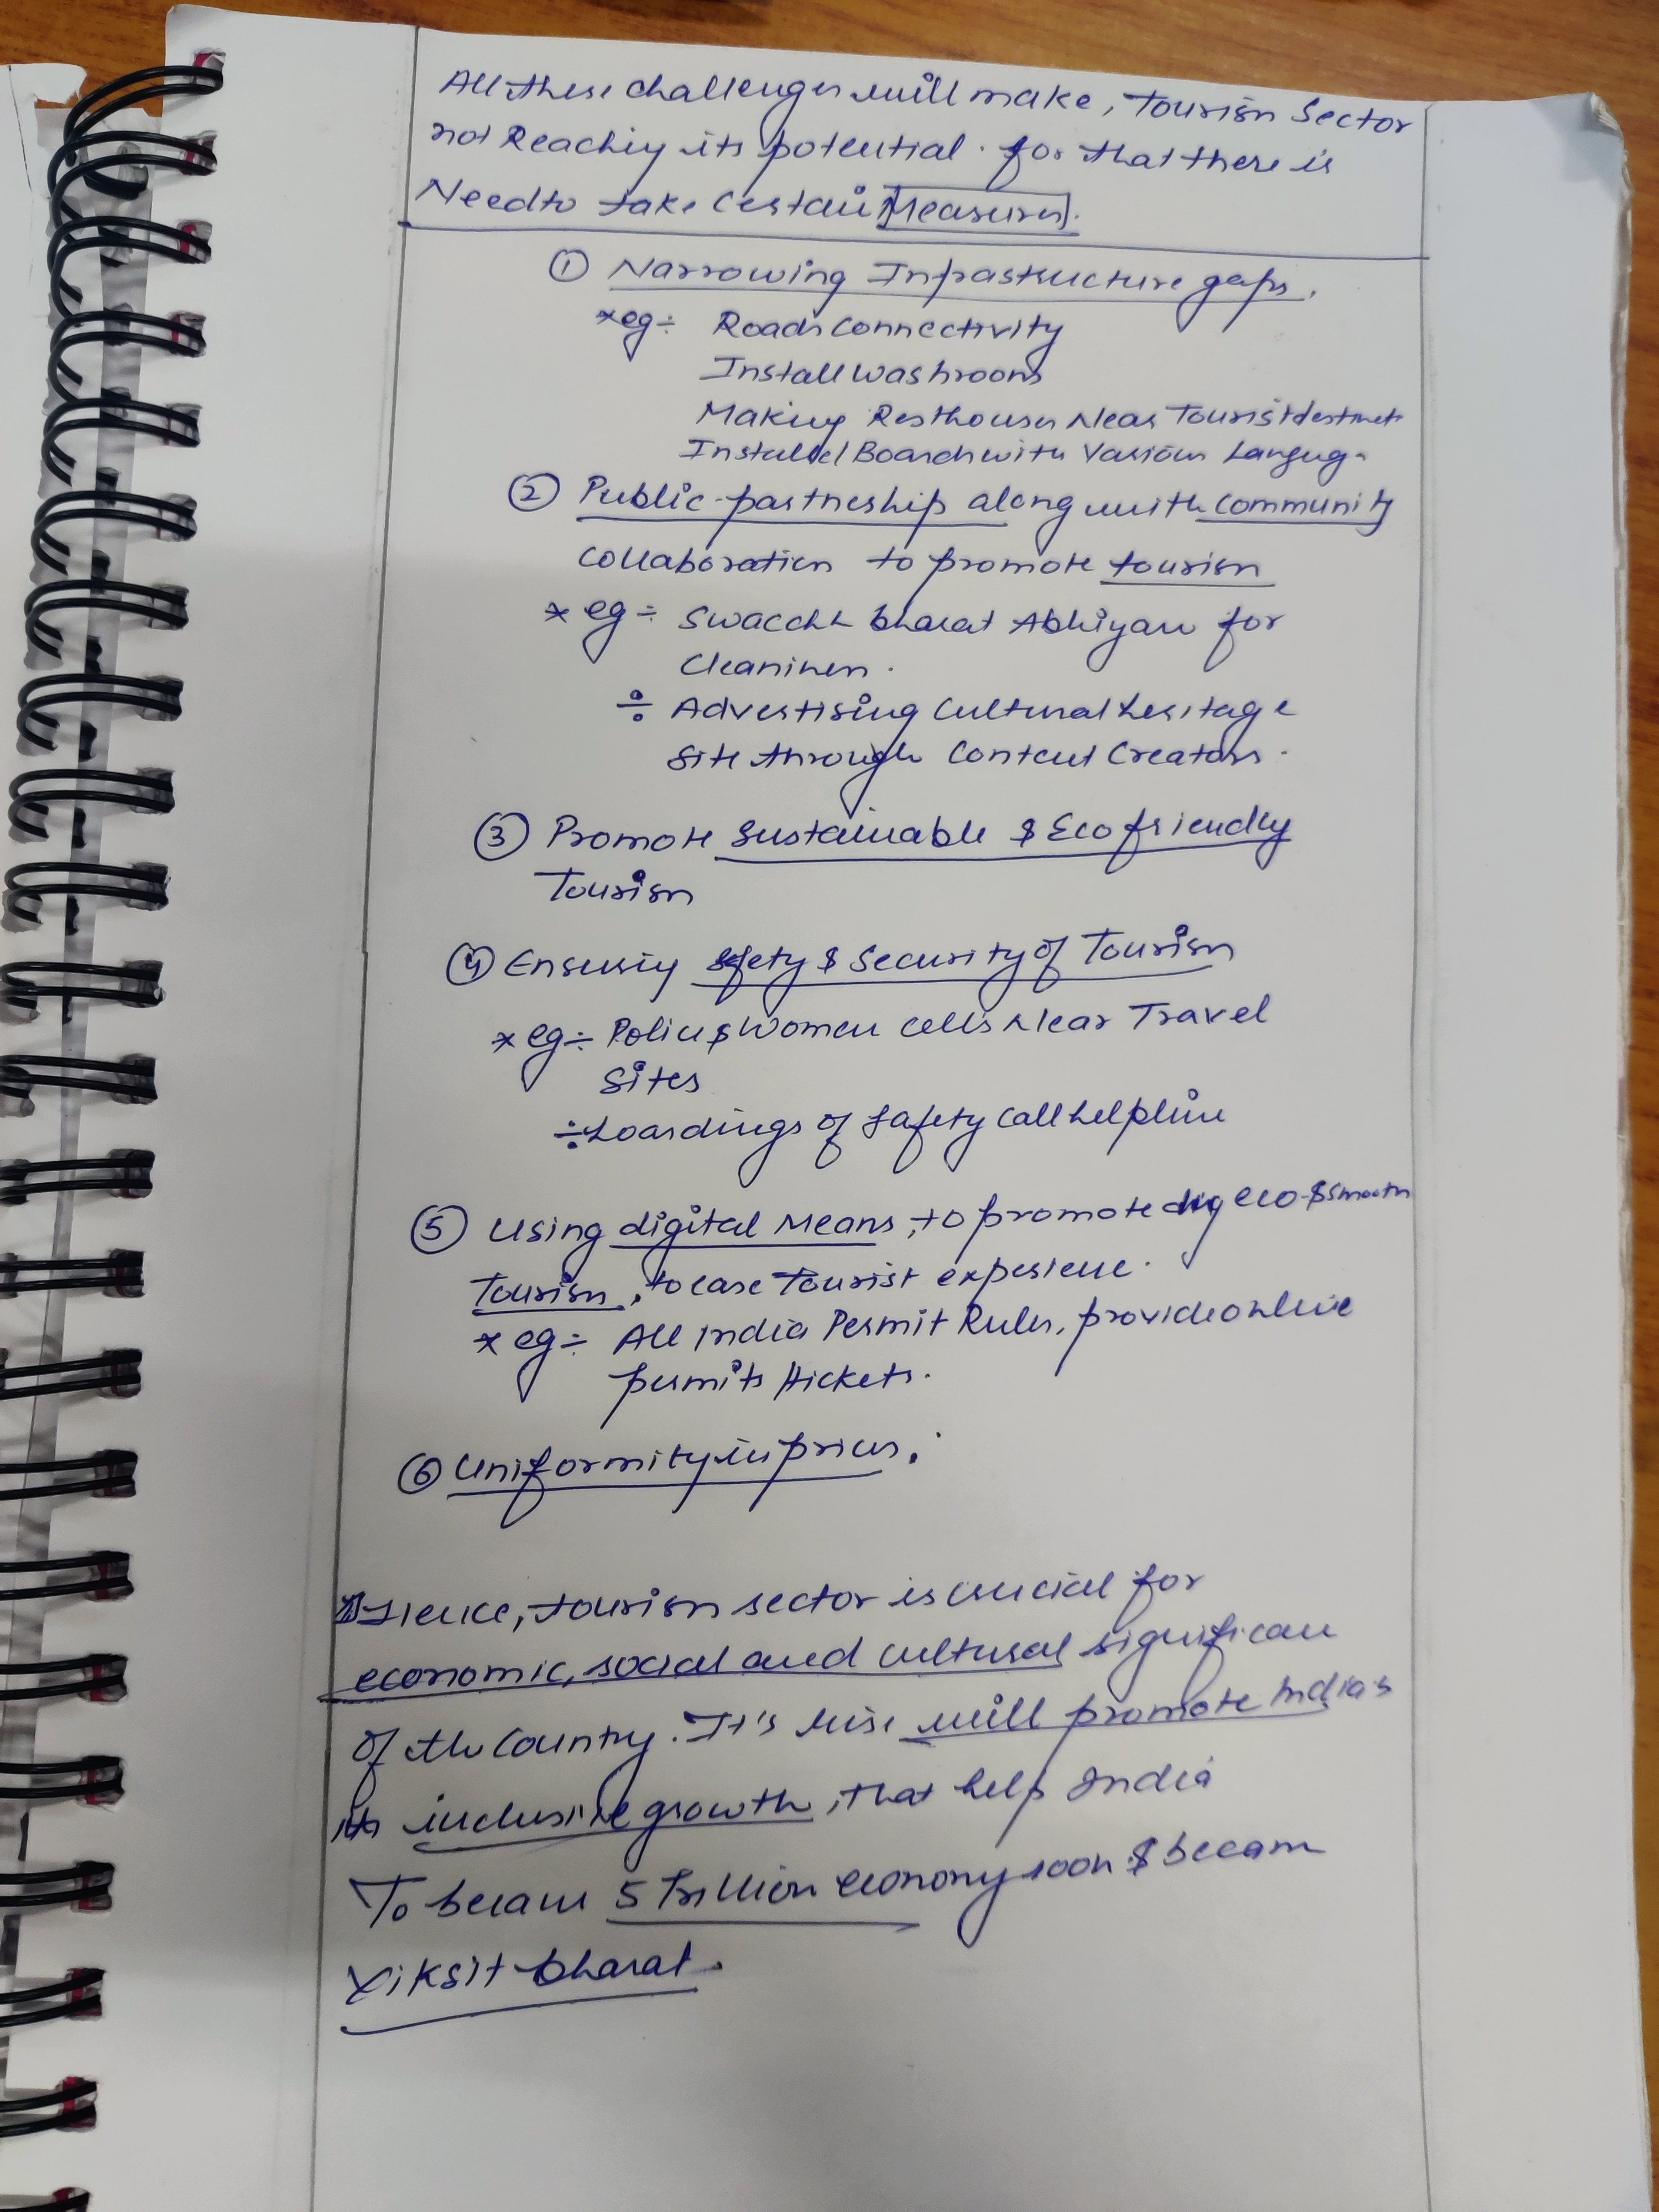 All these challenges will make, Tourism Sector
not Reaching its potential. for that there is
Need to take Certain Measures.
① Narrowing Infrastructure gaps.
*eg÷ Roads Connectivity
Install Washrooms
Making Resthouses Near Tourist destinat
Installed Boards with Various Languag
② Public-partneship along with community
collaboration to promote tourism
* eg÷ Swacchh bharat Abhiyan for
÷ Advertising Cultural heritage
Site through Content Creators.
③ Promote Sustainable & Eco friendly
Tourism
④ Ensuring Sefety & Security of Tourism
* eg÷ Police & Women cells Near Travel
Sites
÷ hoardings of Safety call helpline
⑤ Using digital Means, to promote eco-& smooth
Tourism, to ease Tourist experience.
* eg÷ All india Permit Rules, provide online
permits /tickets.
⑥ Uniformity in prices.
Hence, tourism sector is crucial for
economic, social and cultural significan
Of the Country. It's rise will promote India's
its inclusive growth, that help India
To became 5 Trillion economy soon & becam
Viksit bharat.